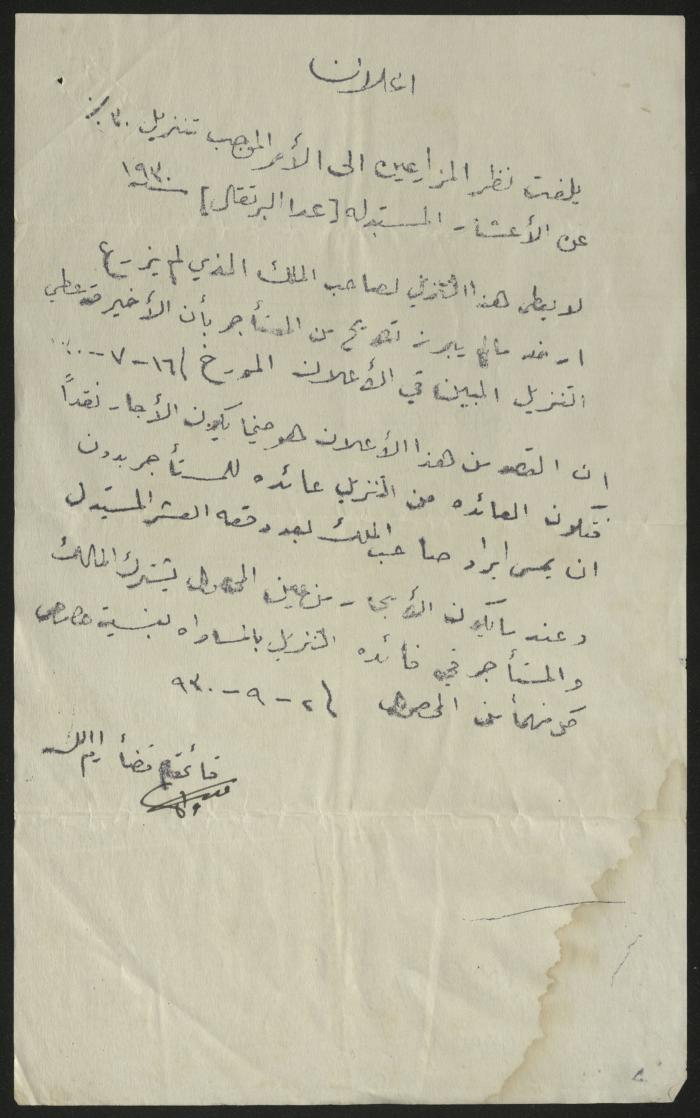 اعلان
يلفت نظر المزارعين الى الأمر الموجب تنزيل ٣٠٪
عن الأعشار المستبدله [عدا البرتقال] ١٩٣٠
لا يعطى هذا التنزيل لصاحب الملك الذي لم يزرع
ارضه مالم يبرز تصريح من المستأجر بأن الأخير قد عطي
التنزيل المبين في الأعلان المورخ ١٦-٧-
ان القصد من هذا الأعلان هو حينما يكون الأجار نقداً
فتكون العائده من التنزيل عائده للمستأجر بدون
ان يمس ايراد صاحب الملك بعد دفعه العشر المستبدل
وعند ما يكون الأيجار من عين المحصول يشترك المالك
والمستأجر في فائده التنزيل بالمساواه بنسبة حصص
كل منهما من المحصول ٢-٩-٩٣٠
قائمقام قضأ رام الله